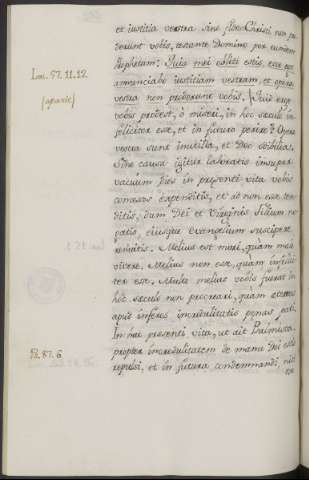 et iustitia vestra sine fide Christi non pro-
derunt vobis, testante Domino per eumdem
Prophetam: Quia mei obliti estis, ecce ego
Isai. 57. 11. 12.
annunciabo iustitiam vestram, et opera
vestra non proderunt vobis. Quid ergo
vobis prodest, o miseri, in hoc saeculo in-
foeliciter esse, et in futuro perire? Opera
vestra sunt inutilia, et Deo odibilia.
Sine causa igitur laboratis insuper
vacuum dies in praesenti vita vobis
comessos expenditis, et ad non esse ten-
ditis, dum Dei et Virginis Filium ne-
gatis, eiusque evangelium suscipere
renuitis. Melius est mori, quam male
vivere. Melius non esse, quam infelici-
ter esse. Multo melius vobis fuerat in
hoc saeculo non procreari, quam aeternas
apud inferos incredulitatis poenas pati.
In hac praesenti vita, ut ait Psalmista,
Ps. 87. 6.
propter incredulitatem de manu Dei estis
repulsi, et in futura condemnandi, nisi